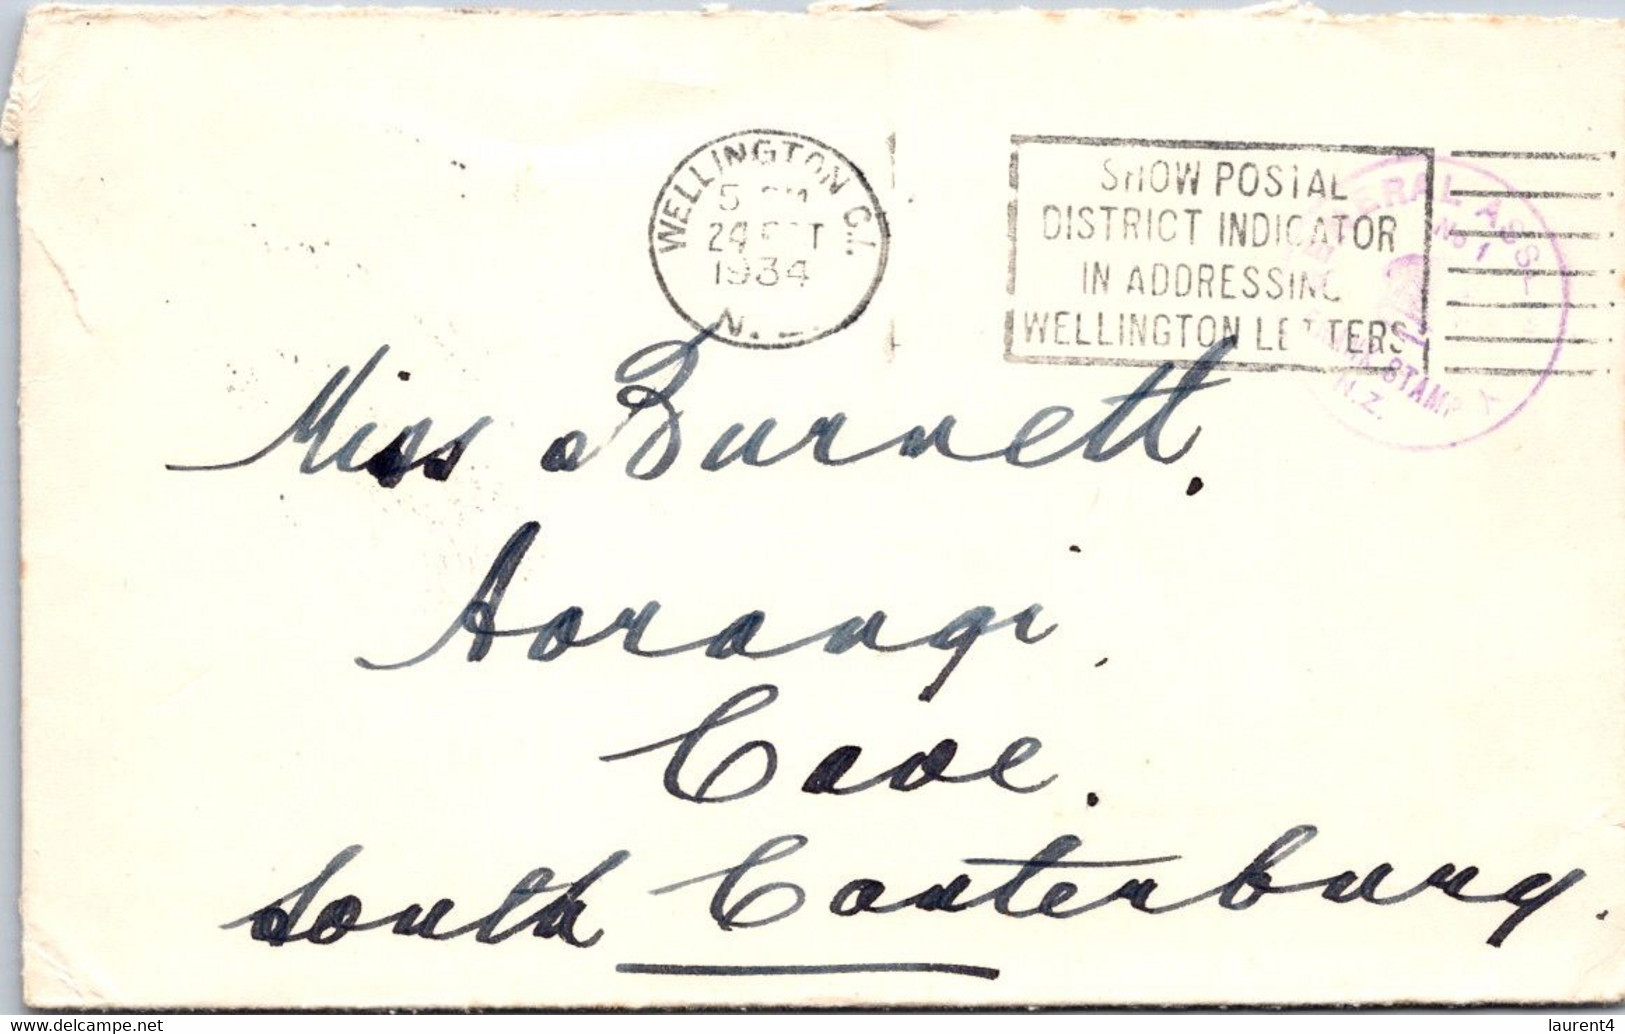 WELLINGTON C.1.
5
24
1934
N.
SHOW POSTAL
DISTRICT INDICATOR
IN ADDRESSING
WELLINGTON LETTERS
No 1
STAMP
N.Z.
Miss Burnett.
Aorangi.
Cave.
South Canterbury.
laurent4